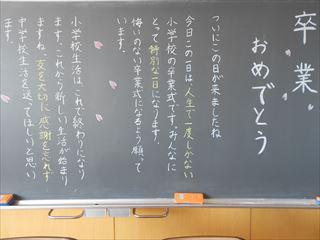 卒業
おめでとう
ついにこの日が来ましたね
今日この一日は人生で一度しかない
小学校の卒業式です。みんなに
とって特別な一日になります。
悔いのない卒業式になるよう願って
います。
小学校生活は、これで終わりになり
ます。これから新しい生活が始まり
ますね。友を大切に、感謝を忘れず
中学校生活を送ってほしいと思い
ます。